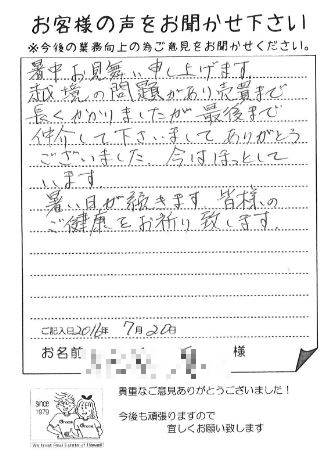 お客様の声をお聞かせ下さい
※今後の業務向上の為ご意見をお聞かせください。
暑中お見舞い申し上げます。
越境の問題があり売買まで
長くかかりましたが最後まで
仲介して下さいまして ありがとう
ございました 今はほっとして
います。
暑い日が続きます 皆様の
ご健康をお祈り致します。
ご記入日2016年 7月20日
お名前 様
since
1979
貴重なご意見ありがとうございました！
今後も頑張りますので
宜しくお願い致します